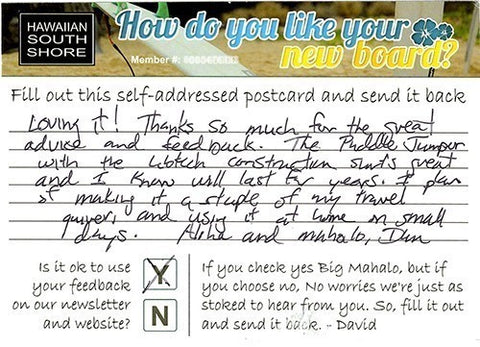 HAWAIIAN
SOUTH
SHORE
How do you like your
new board?
Member #:
Fill out this self-addressed postcard and send it back
Loving it! Thanks so much for the great
advice and feedback. The Puddle Jumper
with the Libtech construction surf's great
and I know will last for years. I plan
of making it a staple of my travel
quiver, and using it at home on small
days. Aloha and mahalo, Dan
Is it ok to use
your feedback
on our newsletter
and website?
Y
N
If you check yes Big Mahalo, but if
you choose no, No worries we're just as
stoked to hear from you. So, fill it out
and send it back. - David